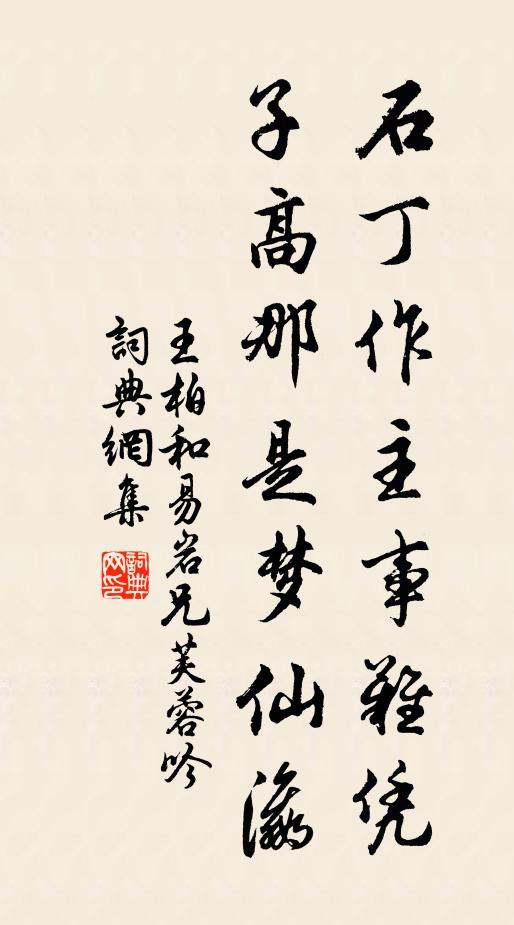 石丁作主事難凭
子高那是梦仙瀛
王柏和易岩兄芙蓉吟
詞典網集
詞典網印